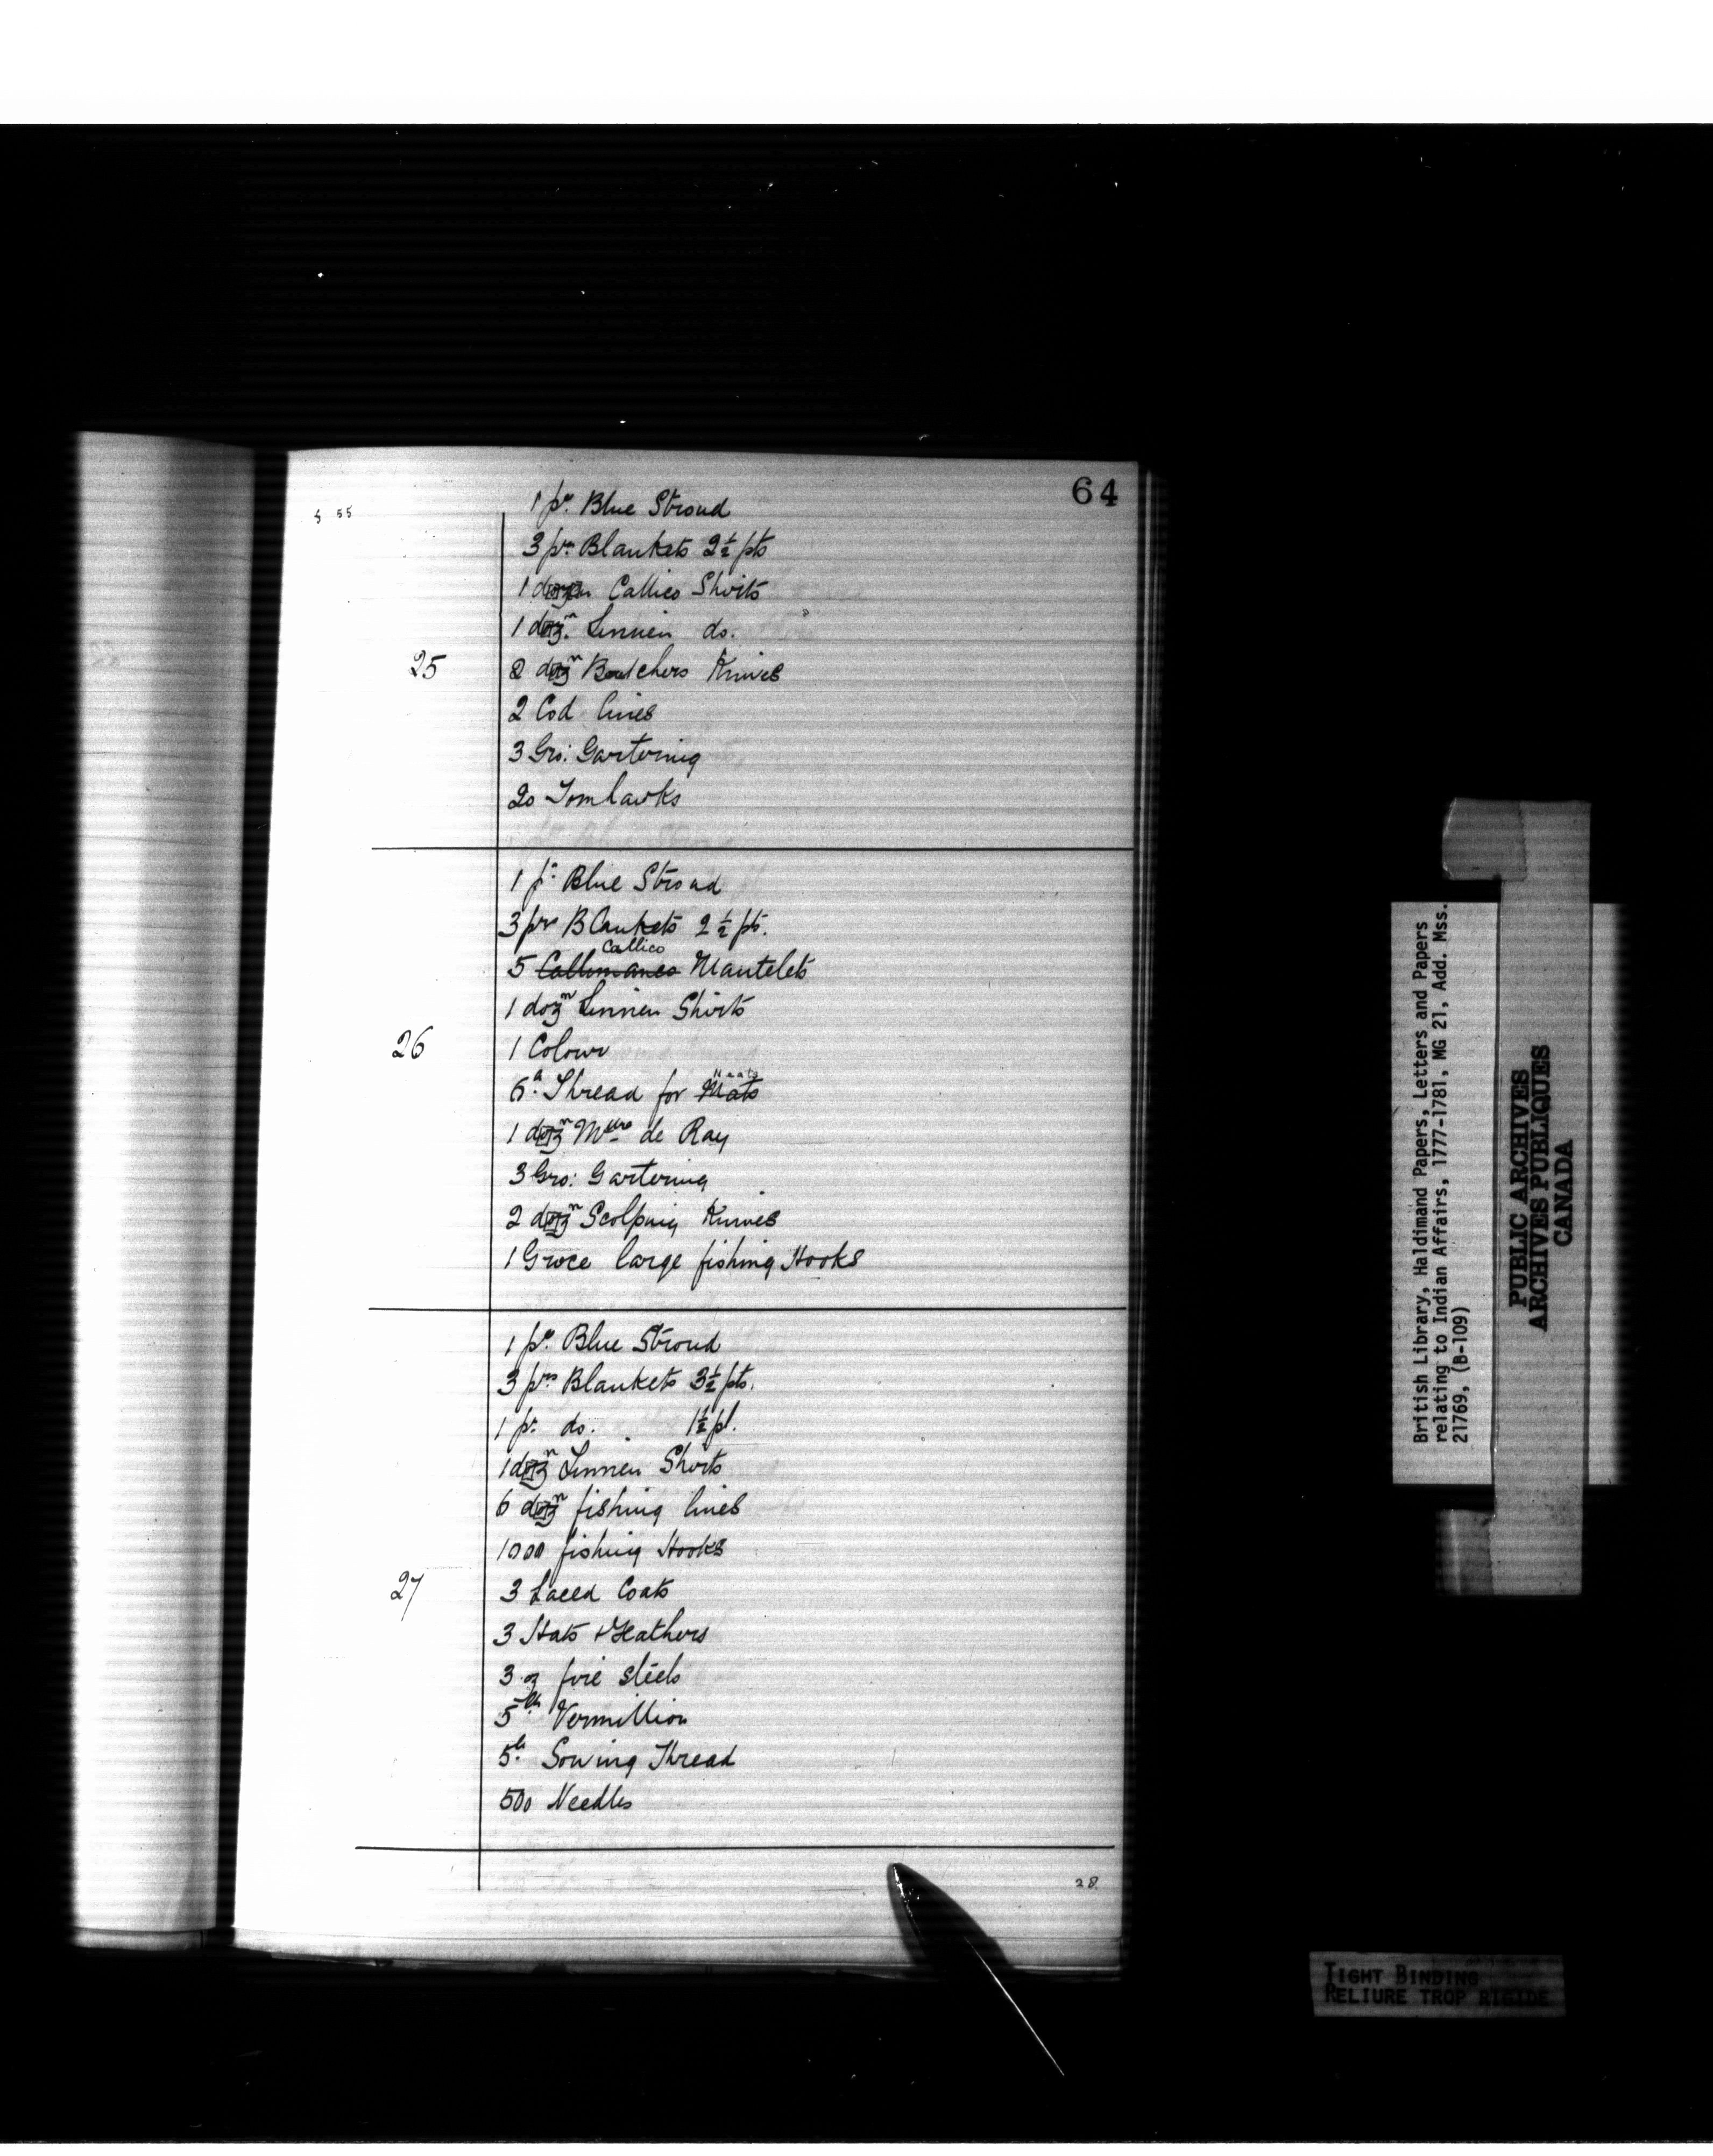 64
1 pe. Blue Stroud
3 prs. Blankets 2½ pts
1 dozen Callico Shirts
1 dozn. Linnen do.
25
2 dozn Butchers Knives
2 Cod lines
3 Gro: Gartering
20 Tomhawks
1 p. Blue Stroud
3 prs Blankets 2½ pts.
Callico
5 Callimanco Mantelets
1 dozn Linnen Shirts
26
1 Colour
Thread for Mats
1 dozn de Ray
3 Gro: Gartering
2 dozn Scolping Knives
1 Groce large fishing Hooks
1 pe. Blue Stroud
3 prs Blankets 3½ pts.
1 pr. do. 1½ pt.
1 dozn Linnen Shirts
6 dozn fishing lines
1000 fishing Hooks
27
3 Laced Coats
3 Hats & Feathers
3 fire steels
5 lb. Vermillion
5 lb. Sowing Thread
500 Needles
28
British Library, Haldimand Papers, Letters and Papers
relating to Indian Affairs, 1777-1781, MG 21, Add. Mss.
21769, (B-109)
PUBLIC ARCHIVES
ARCHIVES PUBLIQUES
CANADA
TIGHT BINDING
RELIURE TROP RIGIDE